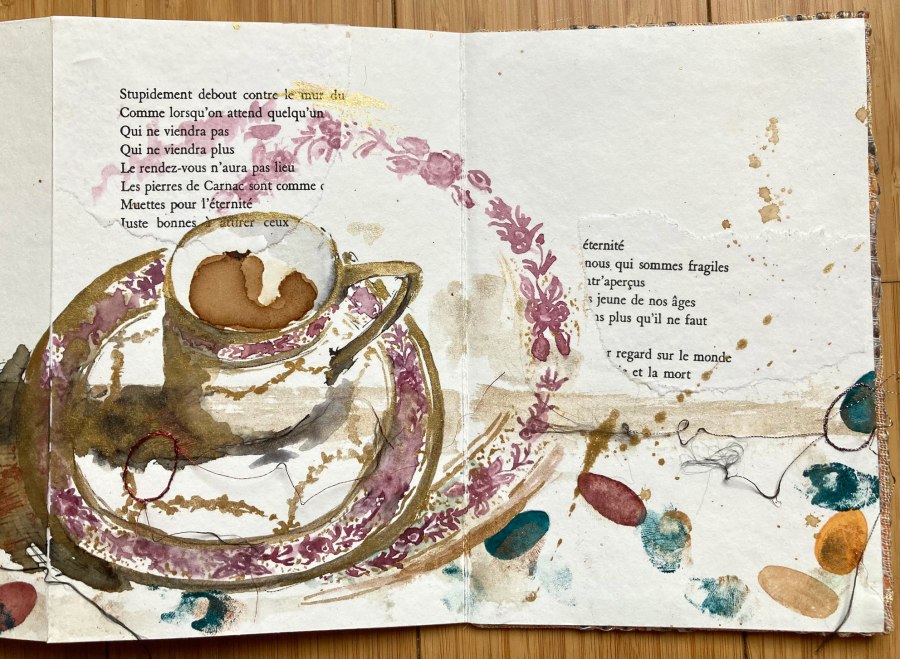 Stupidement debout contre le mur du
Comme lorsqu'on attend quelqu'un
Qui ne viendra pas
Qui ne viendra plus
Le rendez-vous n'aura pas lieu
Les pierres de Carnac sont comme
Muettes pour l'éternité
Juste bonnes à attirer ceux
éternité
nous qui sommes fragiles
ntr'aperçus
s jeune de nos âges
ns plus qu'il ne faut
r regard sur le monde
et la mort